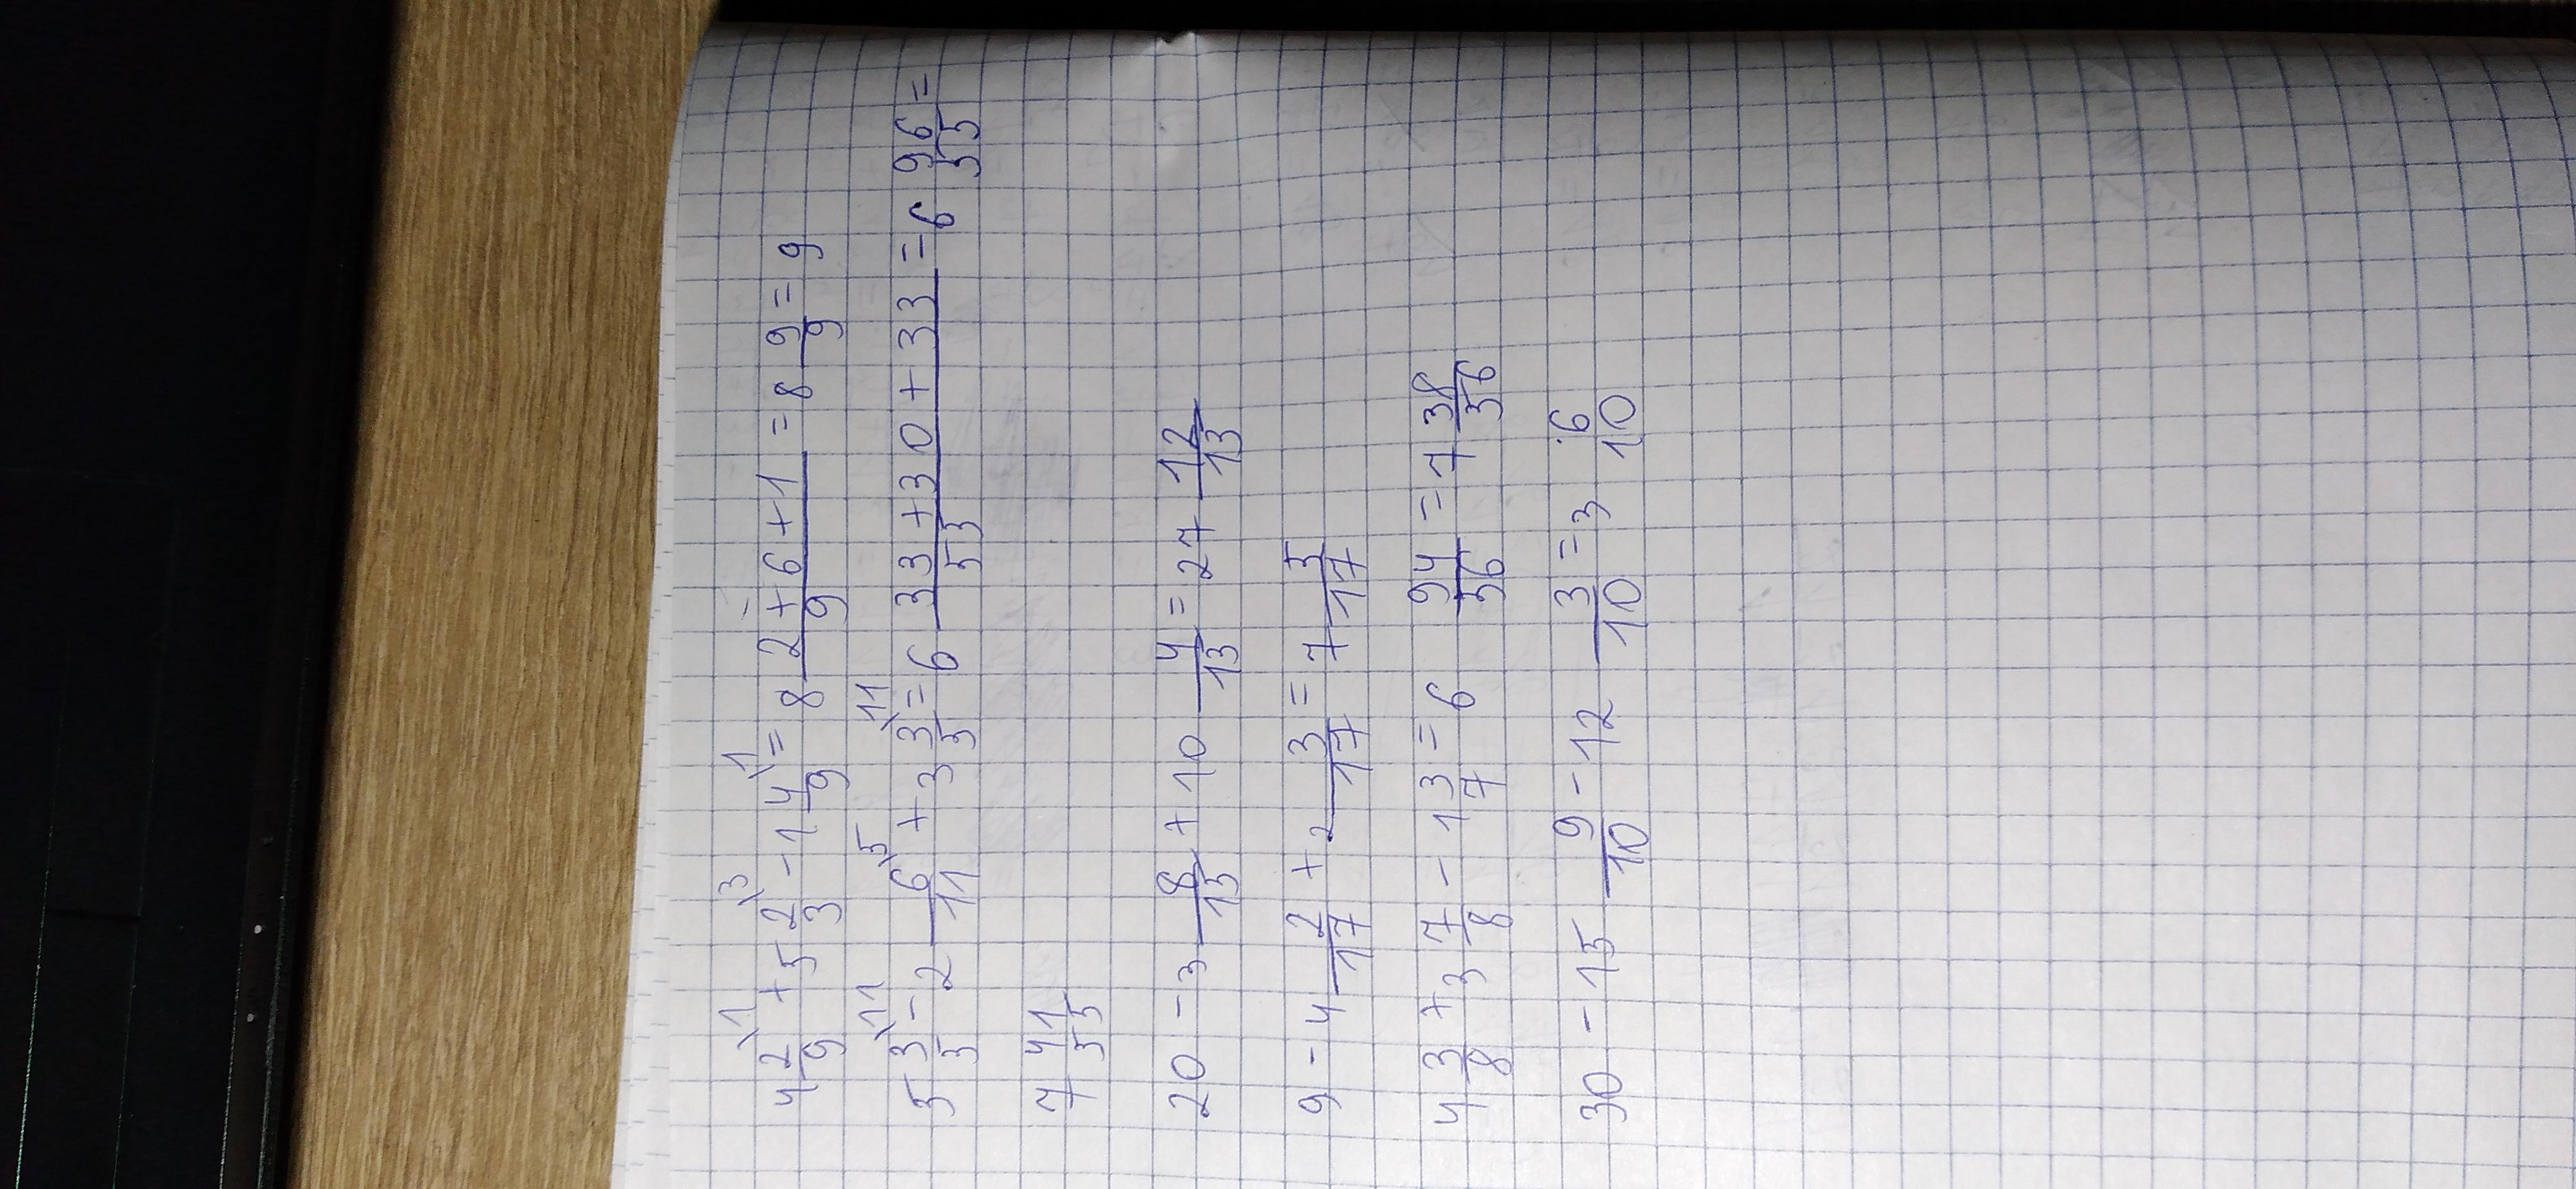 4 2/9 \1 + 5 2/3 \3 - 1 4/9 \1 = 8 (2+6+1)/9 = 8 9/9 = 9
5 3/5 \11 - 2 6/11 \5 + 3 3/5 \11 = 6 (33+30+33)/55 = 6 96/55 =
7 41/55
20 - 3 8/13 + 10 4/13 = 27 12/13
9 - 4 2/17 + 2 3/17 = 7 5/17
4 3/8 + 3 7/8 - 1 3/7 = 6 94/56 = 7 38/56
30 - 15 9/10 - 12 3/10 = 3 6/10